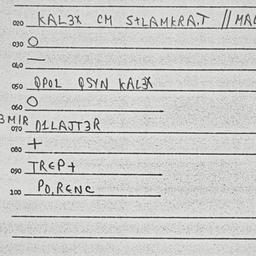 020 KAL3X CM S+LAMKRA.T // MAL
030 O
040 —
050 QPOL QSYN KAL3X
060 O
3MIR
070 D1LAJT3R
080 +
090 TREP+
100 PO,RENC